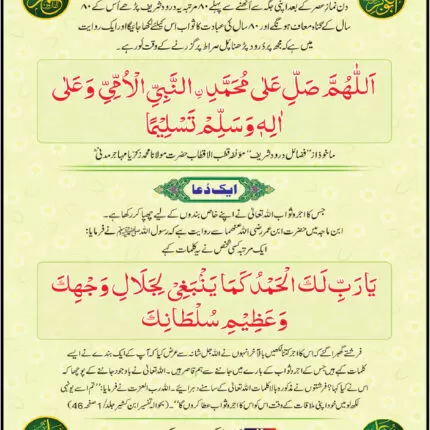 دن نماز عصر کے بعد اپنی جگہ سے اٹھنے سے پہلے ۸۰ مرتبہ یہ درود شریف پڑھے اُس کے ۸۰
سال کے گناہ معاف ہونگے اور ۸۰ سال کی عبادت کا ثواب اس کیلئے لکھا جائیگا اور ایک روایت
میں ہے کہ مجھ پر دُرود پڑھنا پل صراط پر گزرنے کے وقت نور ہے۔
اَللّٰهُمَّ صَلِّ عَلٰى مُحَمَّدِ ۣالنَّبِيِّ الْاُمِّيِّ وَعَلٰى
اٰلِهٖ وَسَلِّمْ تَسْلِيْمًا
ماخوذ از ”فضائل درود شریف“ مؤلفہ قطب الاقطاب حضرت مولانا محمد زکریا مہاجر مدنیؒ
ایک دُعا
جس کا اجر و ثواب اللہ تعالیٰ نے اپنے خاص بندوں کے لیے چھپا کر رکھا ہے۔
ابن ماجہ میں حضرت ابن عمر رضی اللہ عنھما سے روایت ہے کہ رسول اللہ ﷺ نے فرمایا:
ایک مرتبہ کسی شخص نے یہ کلمات کہے
يَارَبِّ لَكَ الْحَمْدُ كَمَا يَنْۢبَغِيْ لِجَلَالِ وَجْهِكَ
وَعَظِيْمِ سُلْطَانِكَ
فرشتے گھبرا گئے کہ اس کا اجر کتنا لکھیں بالآخر انہوں نے اللہ جل شانہ سے عرض کیا کہ آپ کے ایک بندے نے ایسے
کلمات کہے ہیں جس کے اجر و ثواب کے بارے میں جاننے سے ہم قاصر ہیں۔ اللہ تعالیٰ نے باوجود جاننے کے پوچھا کہ
اس نے کیا کہا؟ فرشتوں نے مذکورہ بالا کلمات اللہ تعالیٰ کے سامنے دہرائے۔ اللہ رب العزت نے فرمایا: ”تم اسے یونہی
لکھ لو میں خود اپنی ملاقات کے وقت اس کو اس کا اجر و ثواب عطا کروں گا“۔ (بحوالہ تفسیر ابن کثیر جلد 1/ صفحہ 46)